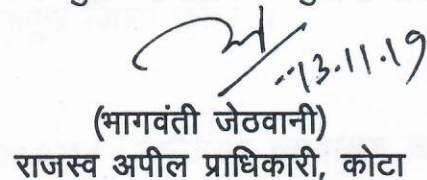 13.11.19
(भागवंती जेठवानी)
राजस्व अपील प्राधिकारी, कोटा